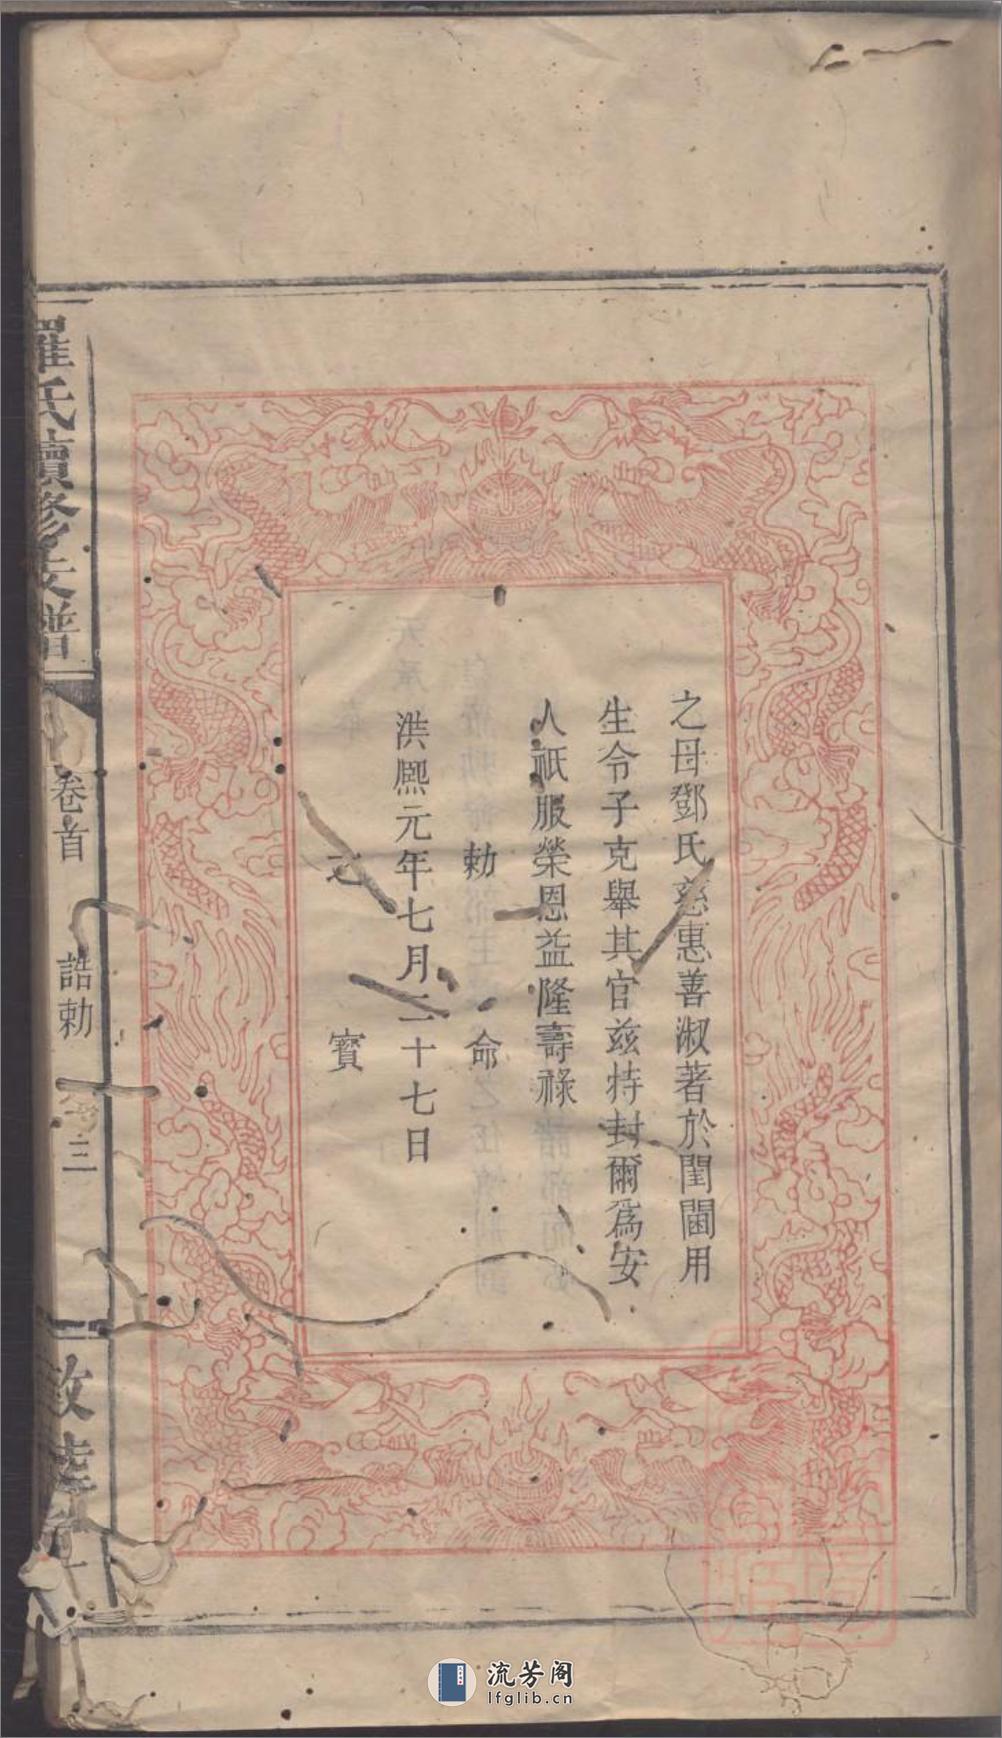 之母鄧氏慈惠善淑著於閨閫用
生令子克舉其官茲特封爾爲安
人祇服榮恩益隆壽祿
勅命
洪熙元年七月二十七日
之寶
羅氏續修支譜
卷首 誥勅
三
敦
流芳阁
lfglib.cn